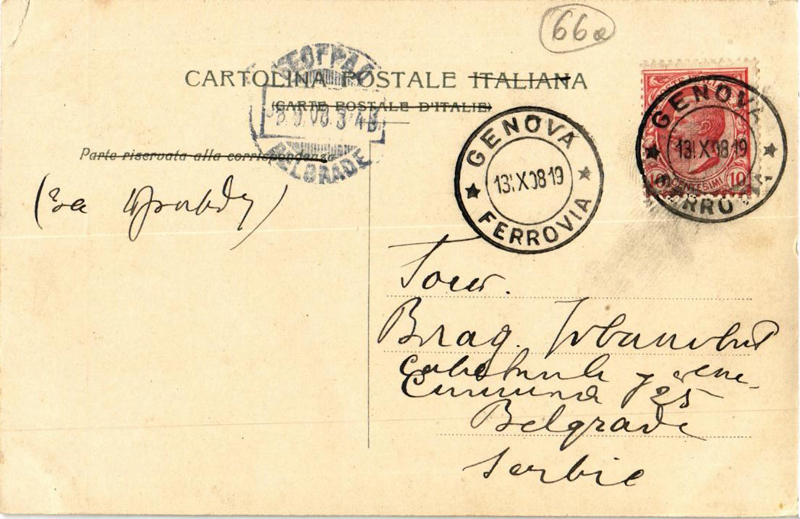 66a
CARTOLINA POSTALE ITALIANA
(CARTE POSTALE D'ITALIE)
Parte riservata alla corrispondenza
БЕОГРАД
BELGRADE
GENOVA
13.X.08.19
FERROVIA
GENOVA
13.X.08.19
FERROVIA
CENTESIMI 10
(За Правду)
Госп.
Драг. Јовановић
Belgrade
Serbie